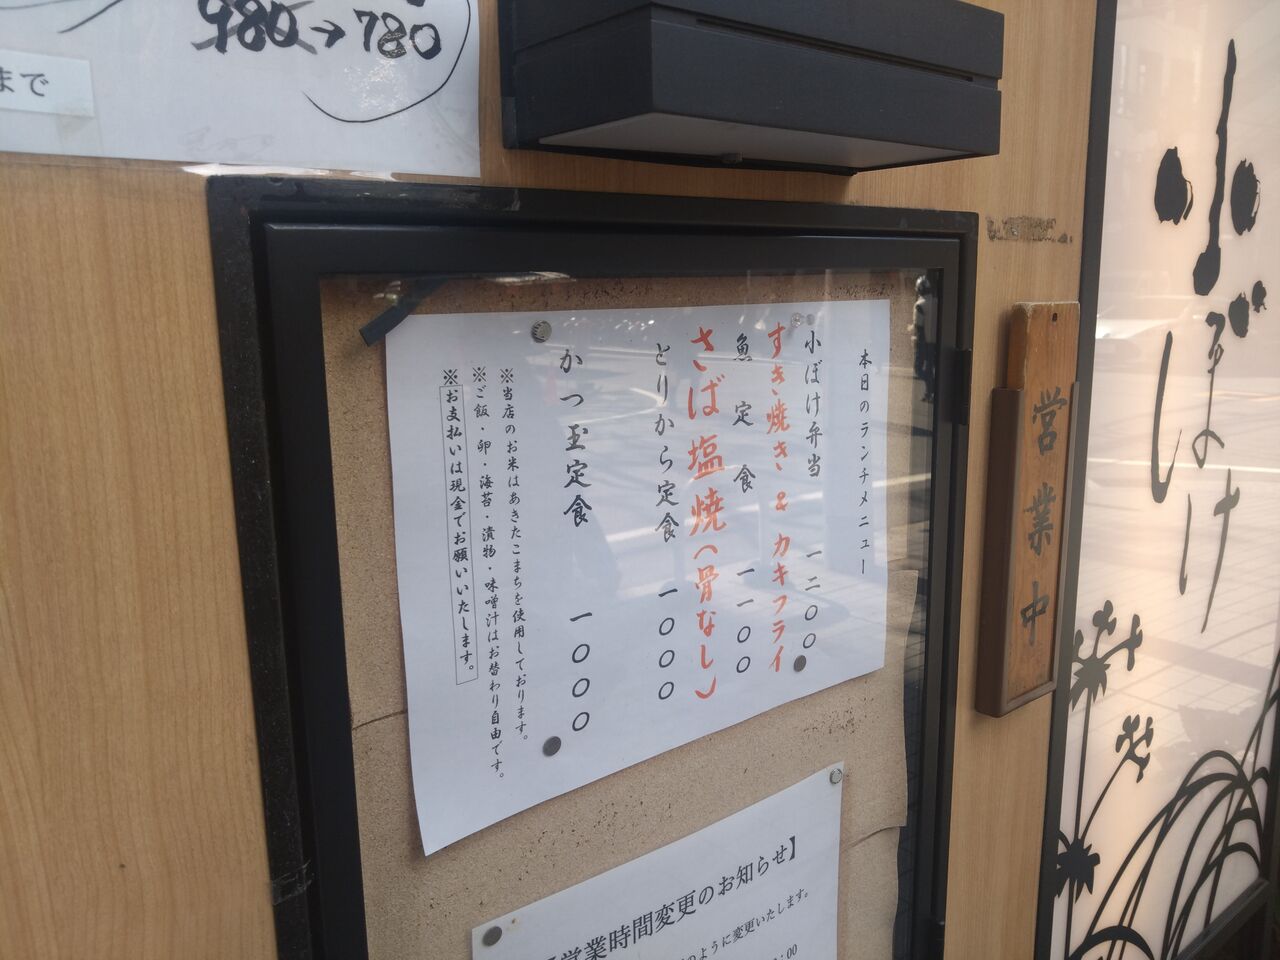 980→780
まで
本日のランチメニュー
小ぼけ弁当 一二〇〇
すき焼き & カキフライ
魚定食 一一〇〇
さば塩焼(骨なし)
とりから定食 一〇〇〇
かつ玉定食 一〇〇〇
※当店のお米はあきたこまちを使用しております。
※ご飯・卵・海苔・漬物・味噌汁はお替わり自由です。
※お支払いは現金でお願いいたします。
営業時間変更のお知らせ】
のように変更いたします。
:00
営業中
小ぼけ